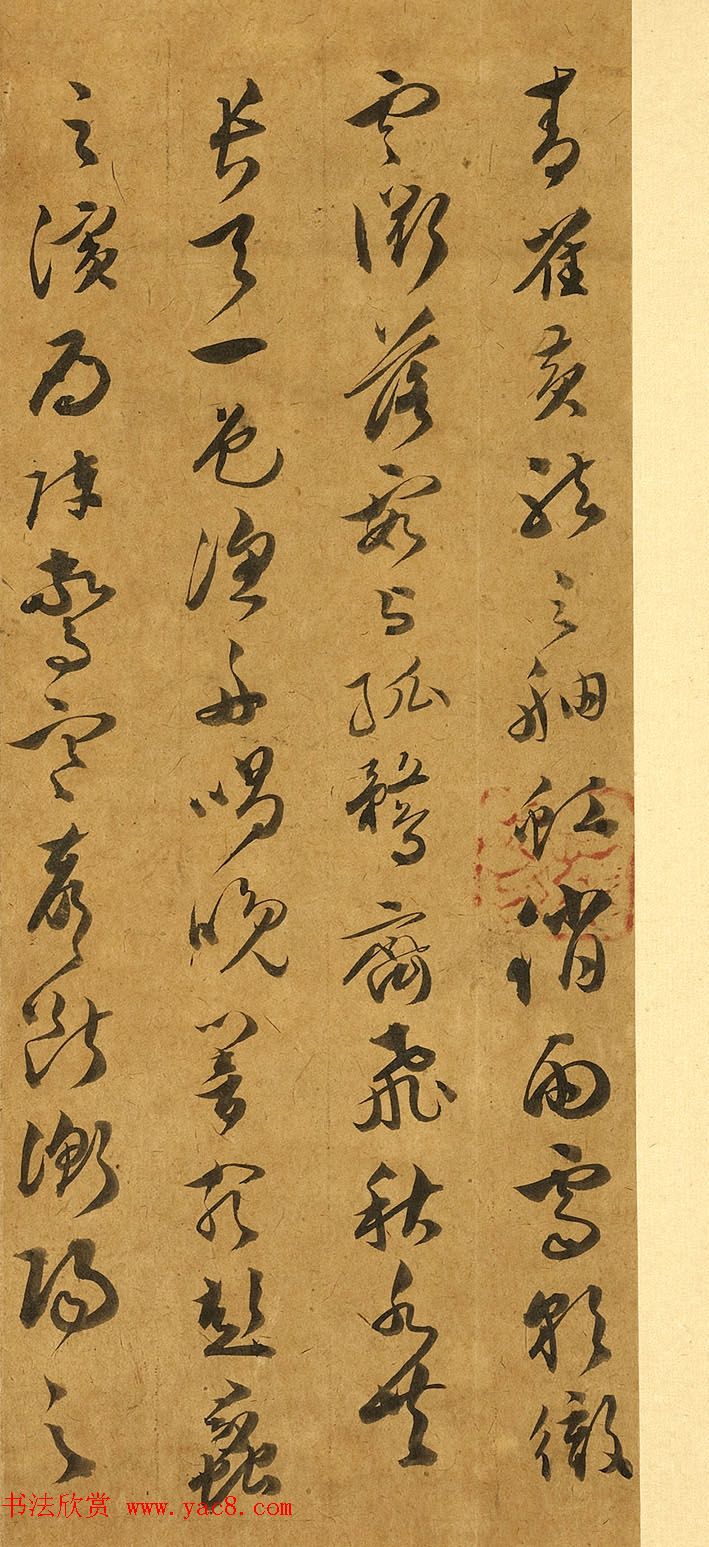 青雀黄龍之舳虹消雨霽彩徹
雲衢落霞与孤鶩齊飛秋水共
長天一色漁舟唱晚響窮彭蠡
之濱鴈陣驚寒聲斷衡陽之
书法欣赏 www.yac8.com